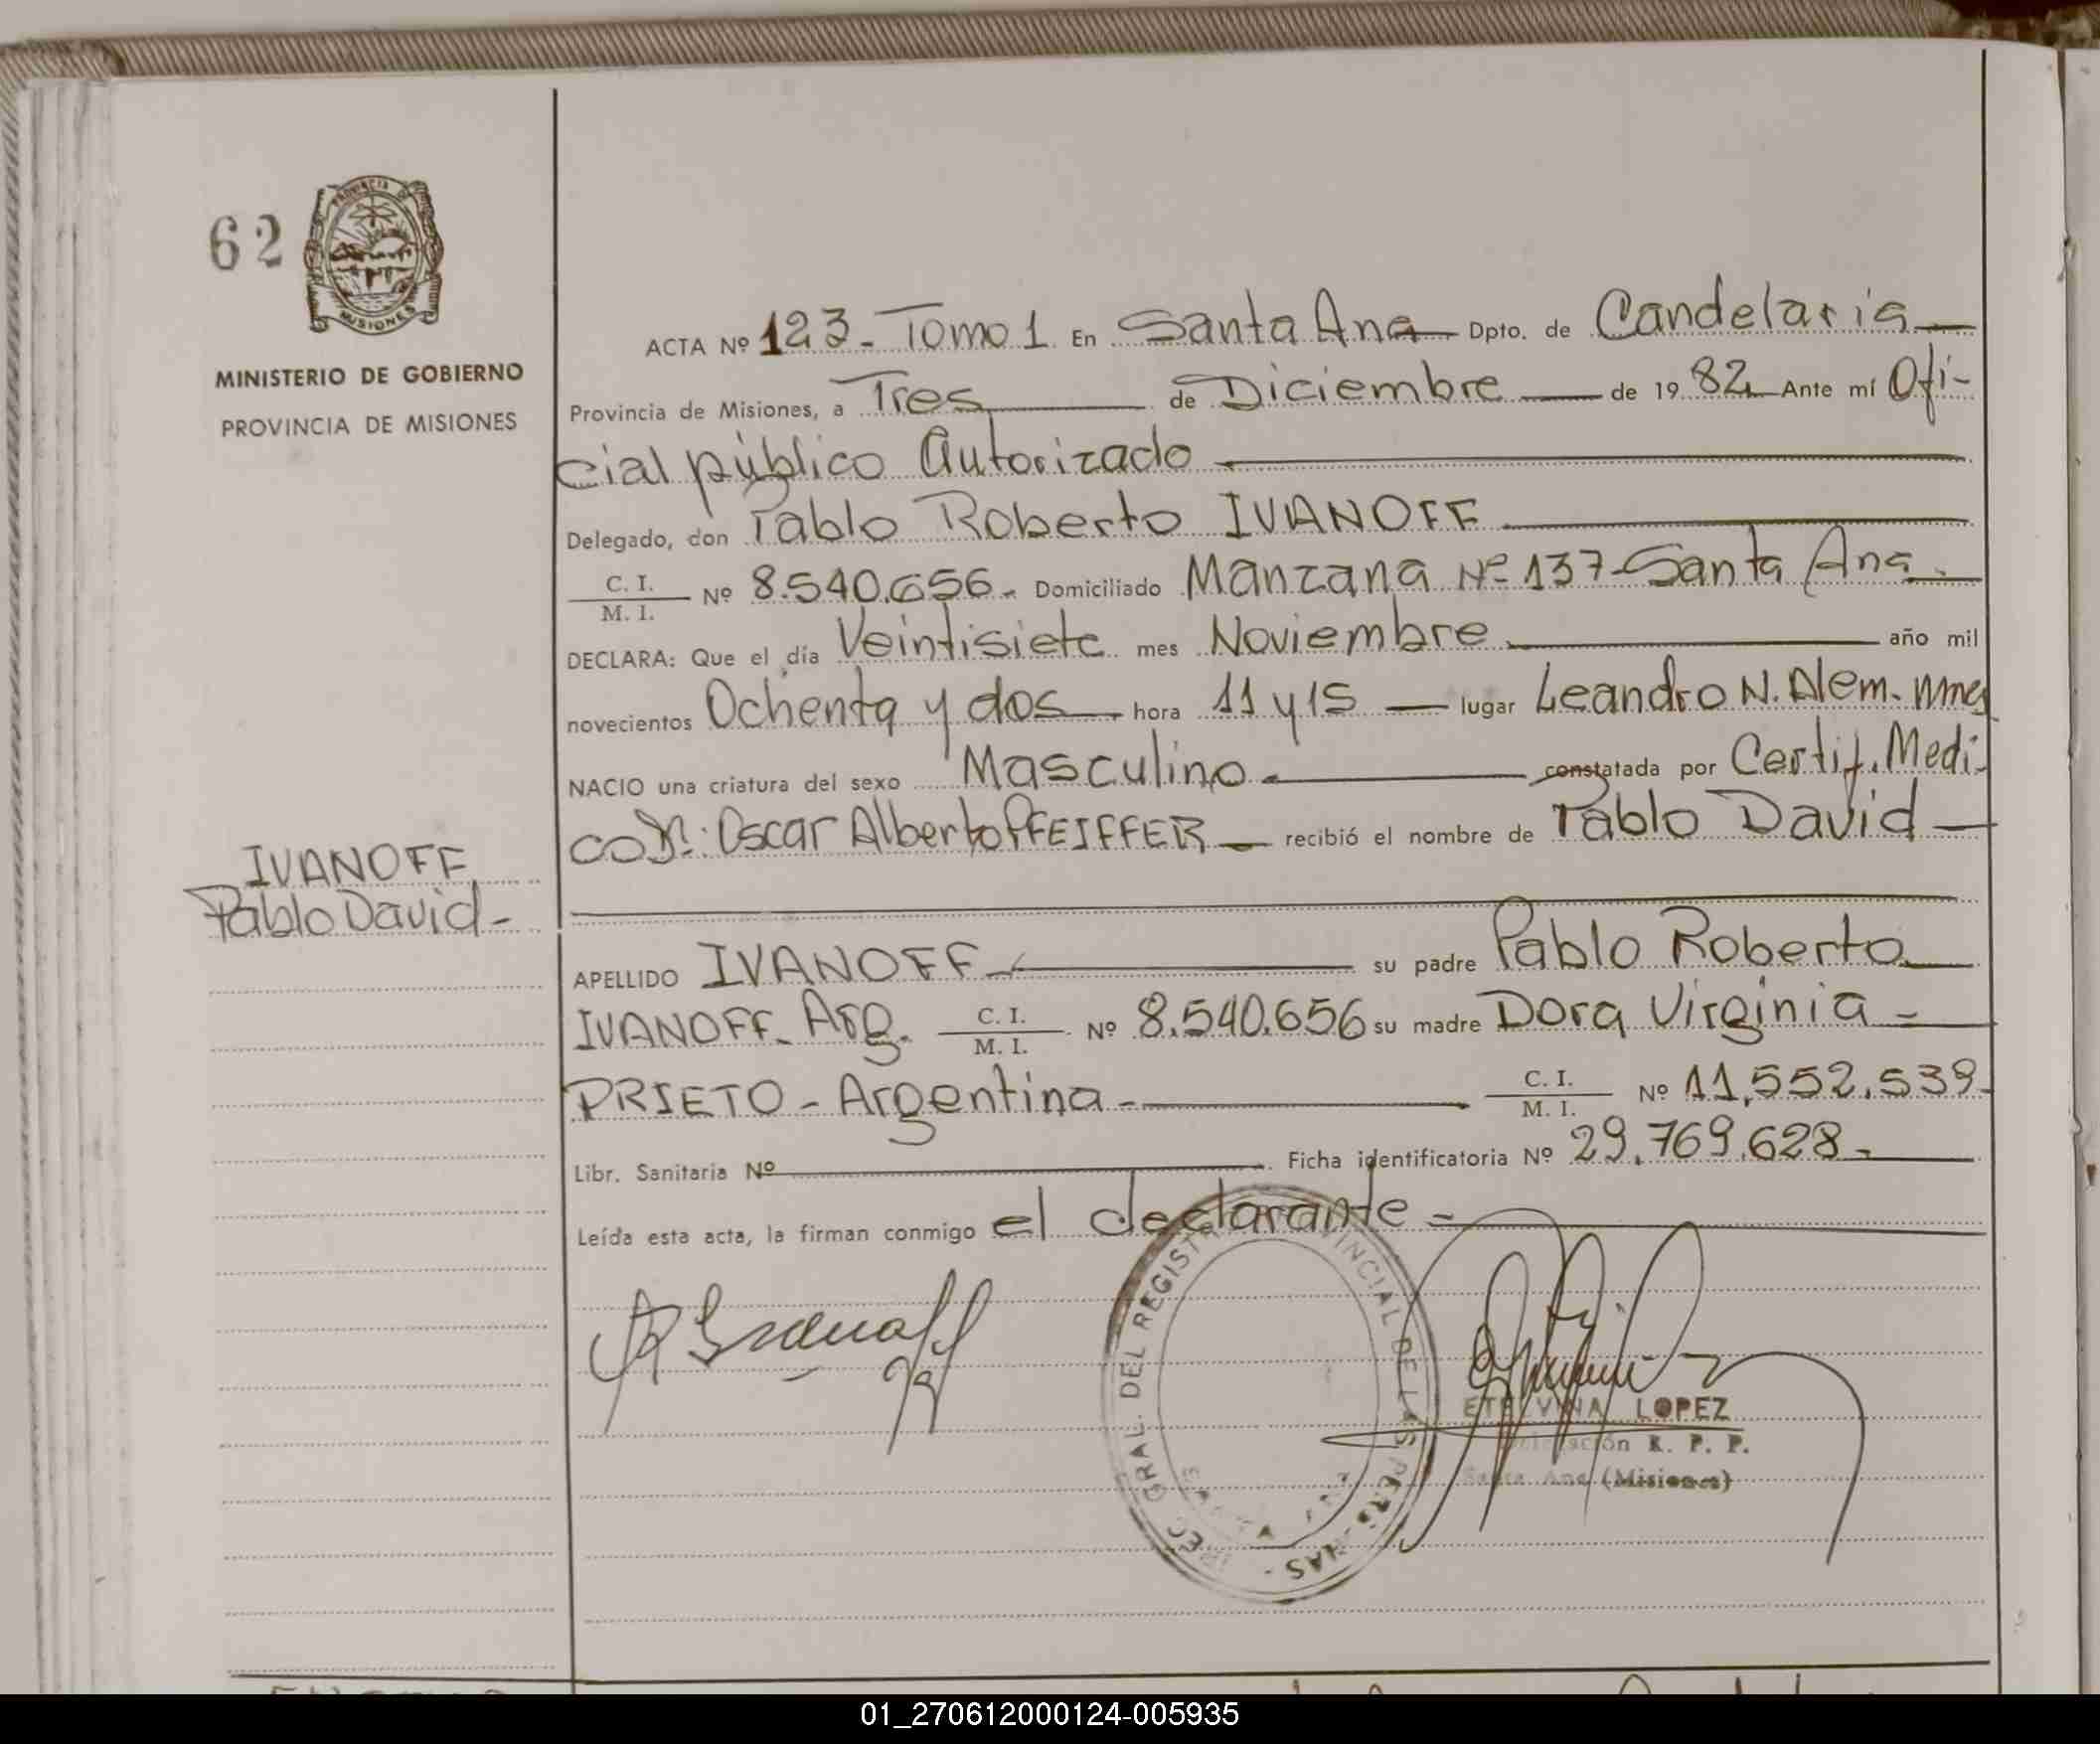 62
PROVINCIA DE
MISIONES
MINISTERIO DE GOBIERNO
PROVINCIA DE MISIONES
ACTA Nº 123 - Tomo 1 En Santa Ana Dpto. de Candelaria
Provincia de Misiones, a Tres de Diciembre de 1982 Ante mí Ofi-
cial público Autorizado
Delegado, don Pablo Roberto IVANOFF
C. I.
M. I. Nº 8.540.656. Domiciliado Manzana Nº 137-Santa Ana.
DECLARA: Que el día Veintisiete mes Noviembre año mil
novecientos Ochenta y dos hora 11 y 15 lugar Leandro N. Alem. Mnes
NACIO una criatura del sexo Masculino constatada por Certif. Medi-
co Dr.: Oscar Alberto PFEIFFER recibió el nombre de Pablo David
IVANOFF
Pablo David-
APELLIDO IVANOFF su padre Pablo Roberto
IVANOFF. Arg. C. I.
M. I. Nº 8.540.656 su madre Dora Virginia -
PRIETO - Argentina - C. I.
M. I. Nº 11.552.539-
Libr. Sanitaria Nº Ficha identificatoria Nº 29.769.628-
Leída esta acta, la firman conmigo el declarante -
GRAL. DEL REGIST VINCIAL DE LAS PERSONAS -
ETELVINA LOPEZ
Delegación R. P. P.
Santa Ana (Misiones)
01_270612000124-005935